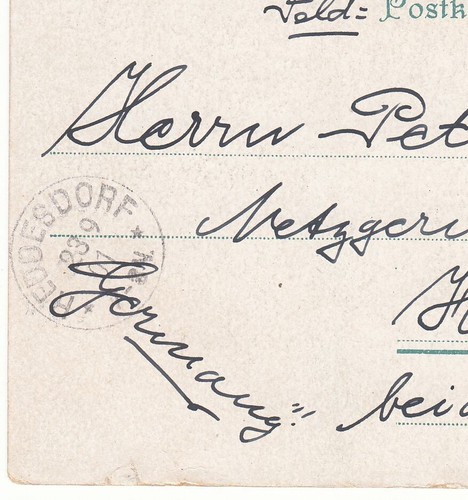 Feld= Postk
Herrn Pet
Metzger
H
Germany!!
bei
HEDDESDORF
23 9